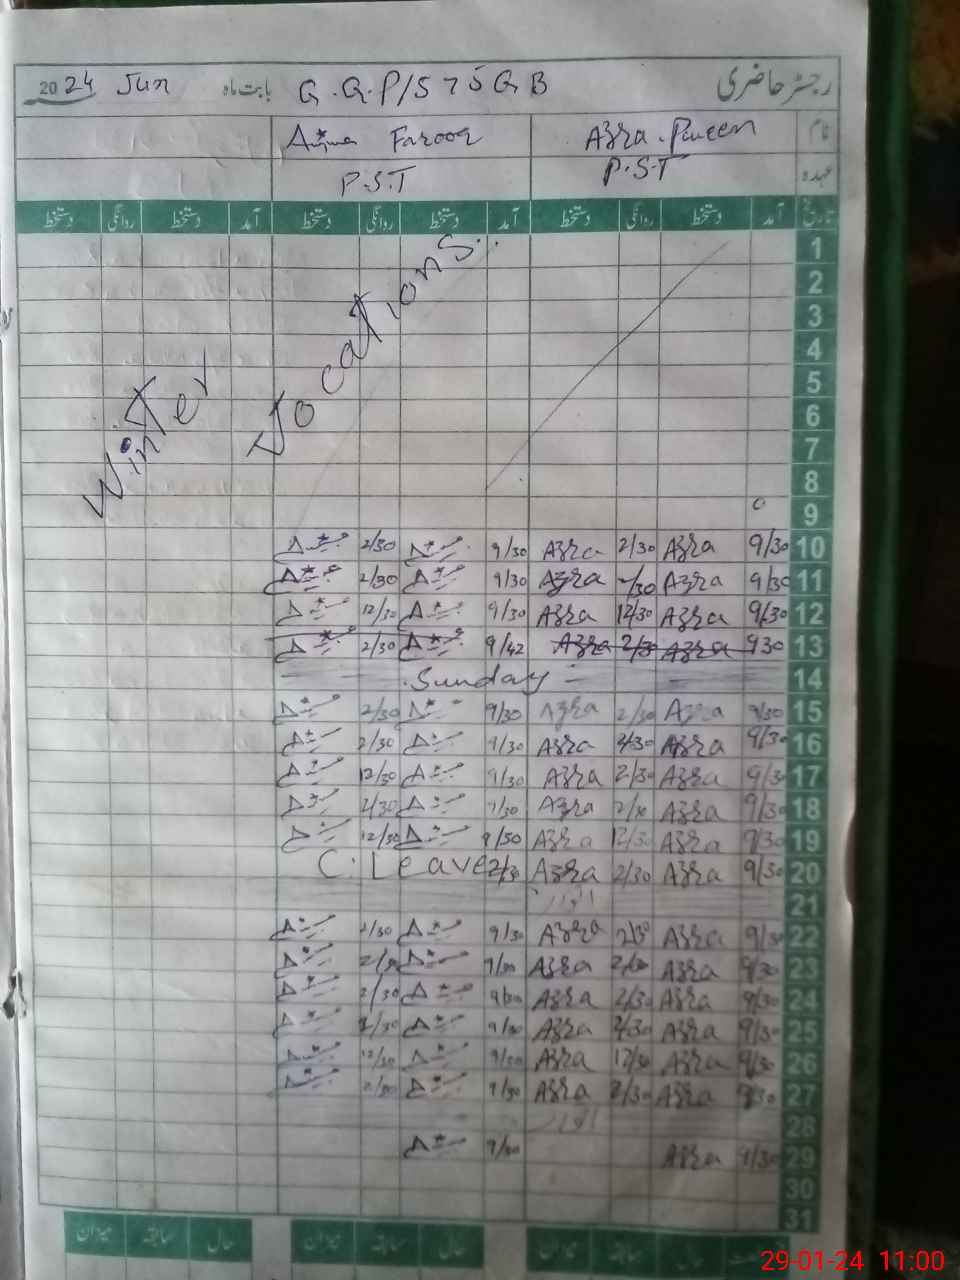 2024 Jun بابت ماہ G.G.P/S 575 GB رجسٹر حاضری
Farooq Azra Paveen نام
P.S.T P.S.T عہدہ
دستخط روانگی دستخط آمد دستخط روانگی دستخط آمد دستخط روانگی دستخط آمد تاریخ
Winter Vocations..
1
2
3
4
5
6
7
8
9
2/30 9/30 Azra 2/30 Azra 9/30 10
2/30 9/30 Azra 2/30 Azra 9/30 11
12/30 9/30 Azra 12/30 Azra 9/30 12
2/30 9/42 Azra 2/30 Azra 930 13
Sunday 14
2/30 9/30 Azra 2/30 Azra 9/30 15
2/30 9/30 Azra 2/30 Azra 9/30 16
12/30 9/30 Azra 2/30 Azra 9/30 17
2/30 9/30 Azra 2/30 Azra 9/30 18
12/30 9/30 Azra 12/30 Azra 9/30 19
C. Leave 2/30 Azra 2/30 Azra 9/30 20
اتوار 21
2/30 9/30 Azra 2/30 Azra 9/30 22
2/30 9/30 Azra 2/30 Azra 9/30 23
2/30 9/30 Azra 2/30 Azra 9/30 24
2/30 9/30 Azra 2/30 Azra 9/30 25
12/30 9/30 Azra 12/30 Azra 9/30 26
2/30 9/30 Azra 2/30 Azra 9/30 27
اتوار 28
9/30 Azra 9/30 29
30
31
میزان سابقہ حال میزان سابقہ حال میزان سابقہ حال
29-01-24 11:00